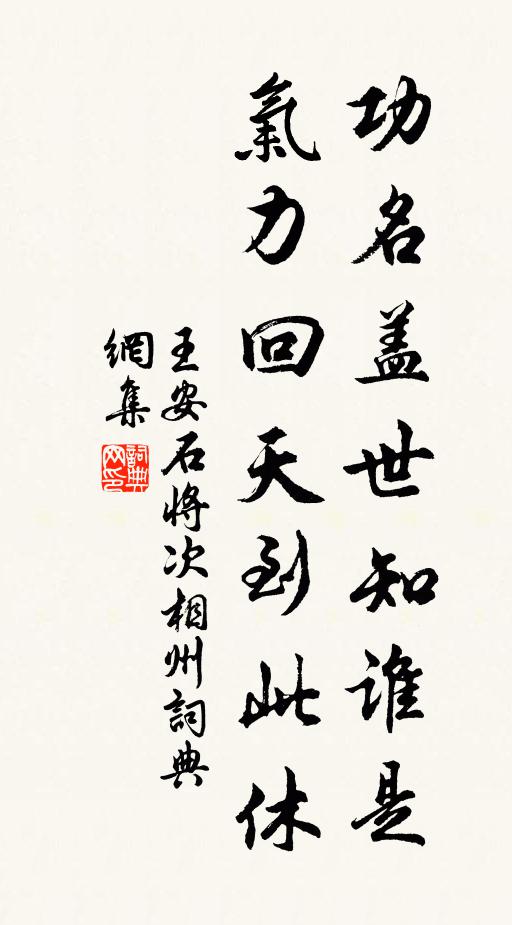 功名盖世知誰是
氣力回天到此休
王安石將次相州詞典
網集
詞典
网印